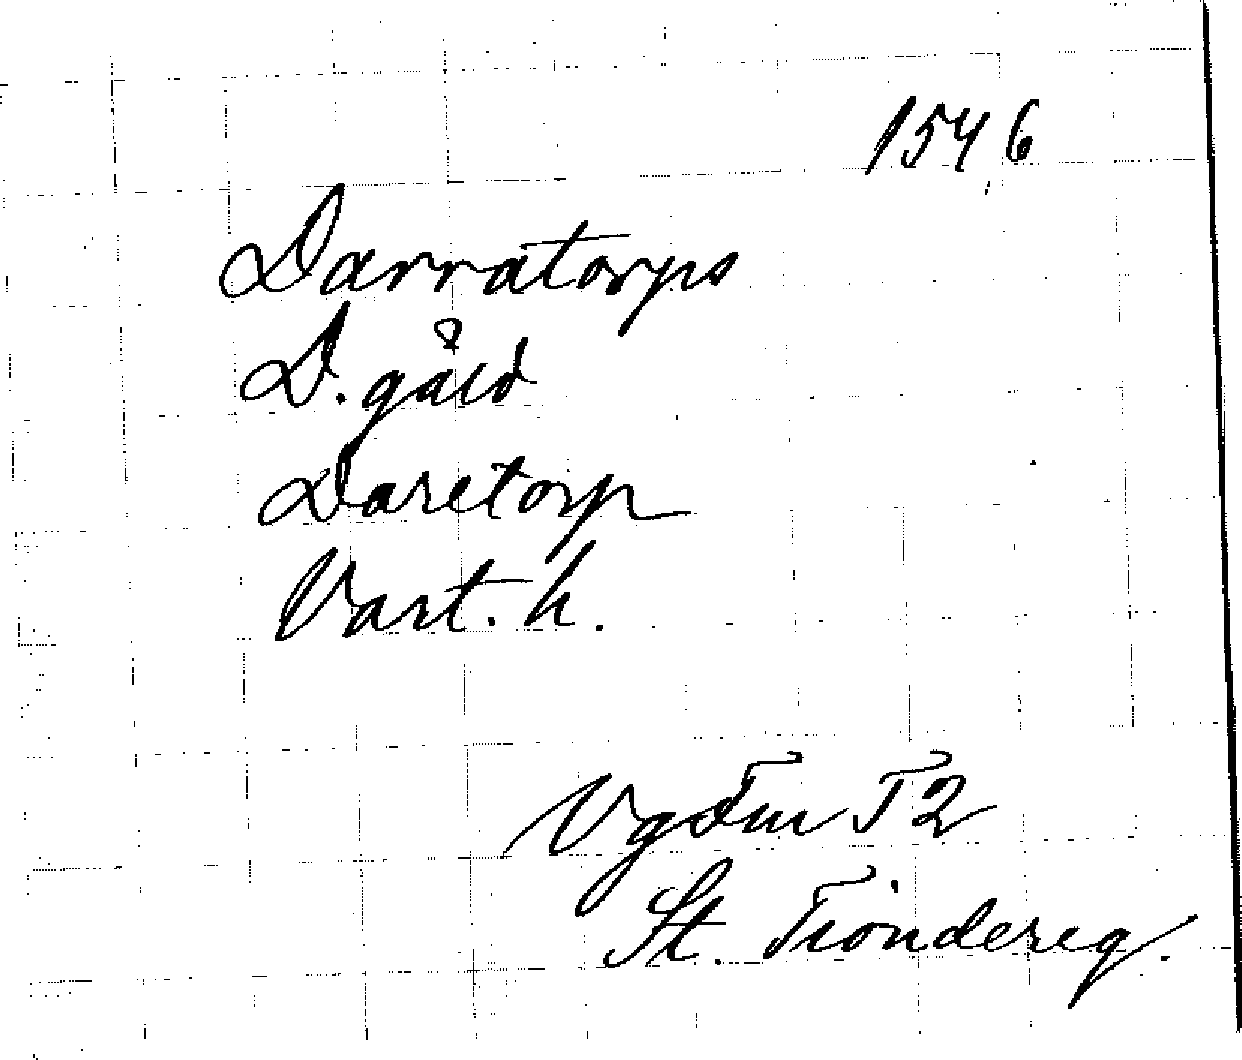 1546
Darratorps
D. gård
Daretorp
Vart. h.
Vg Tm T2
St. Tiondereg.